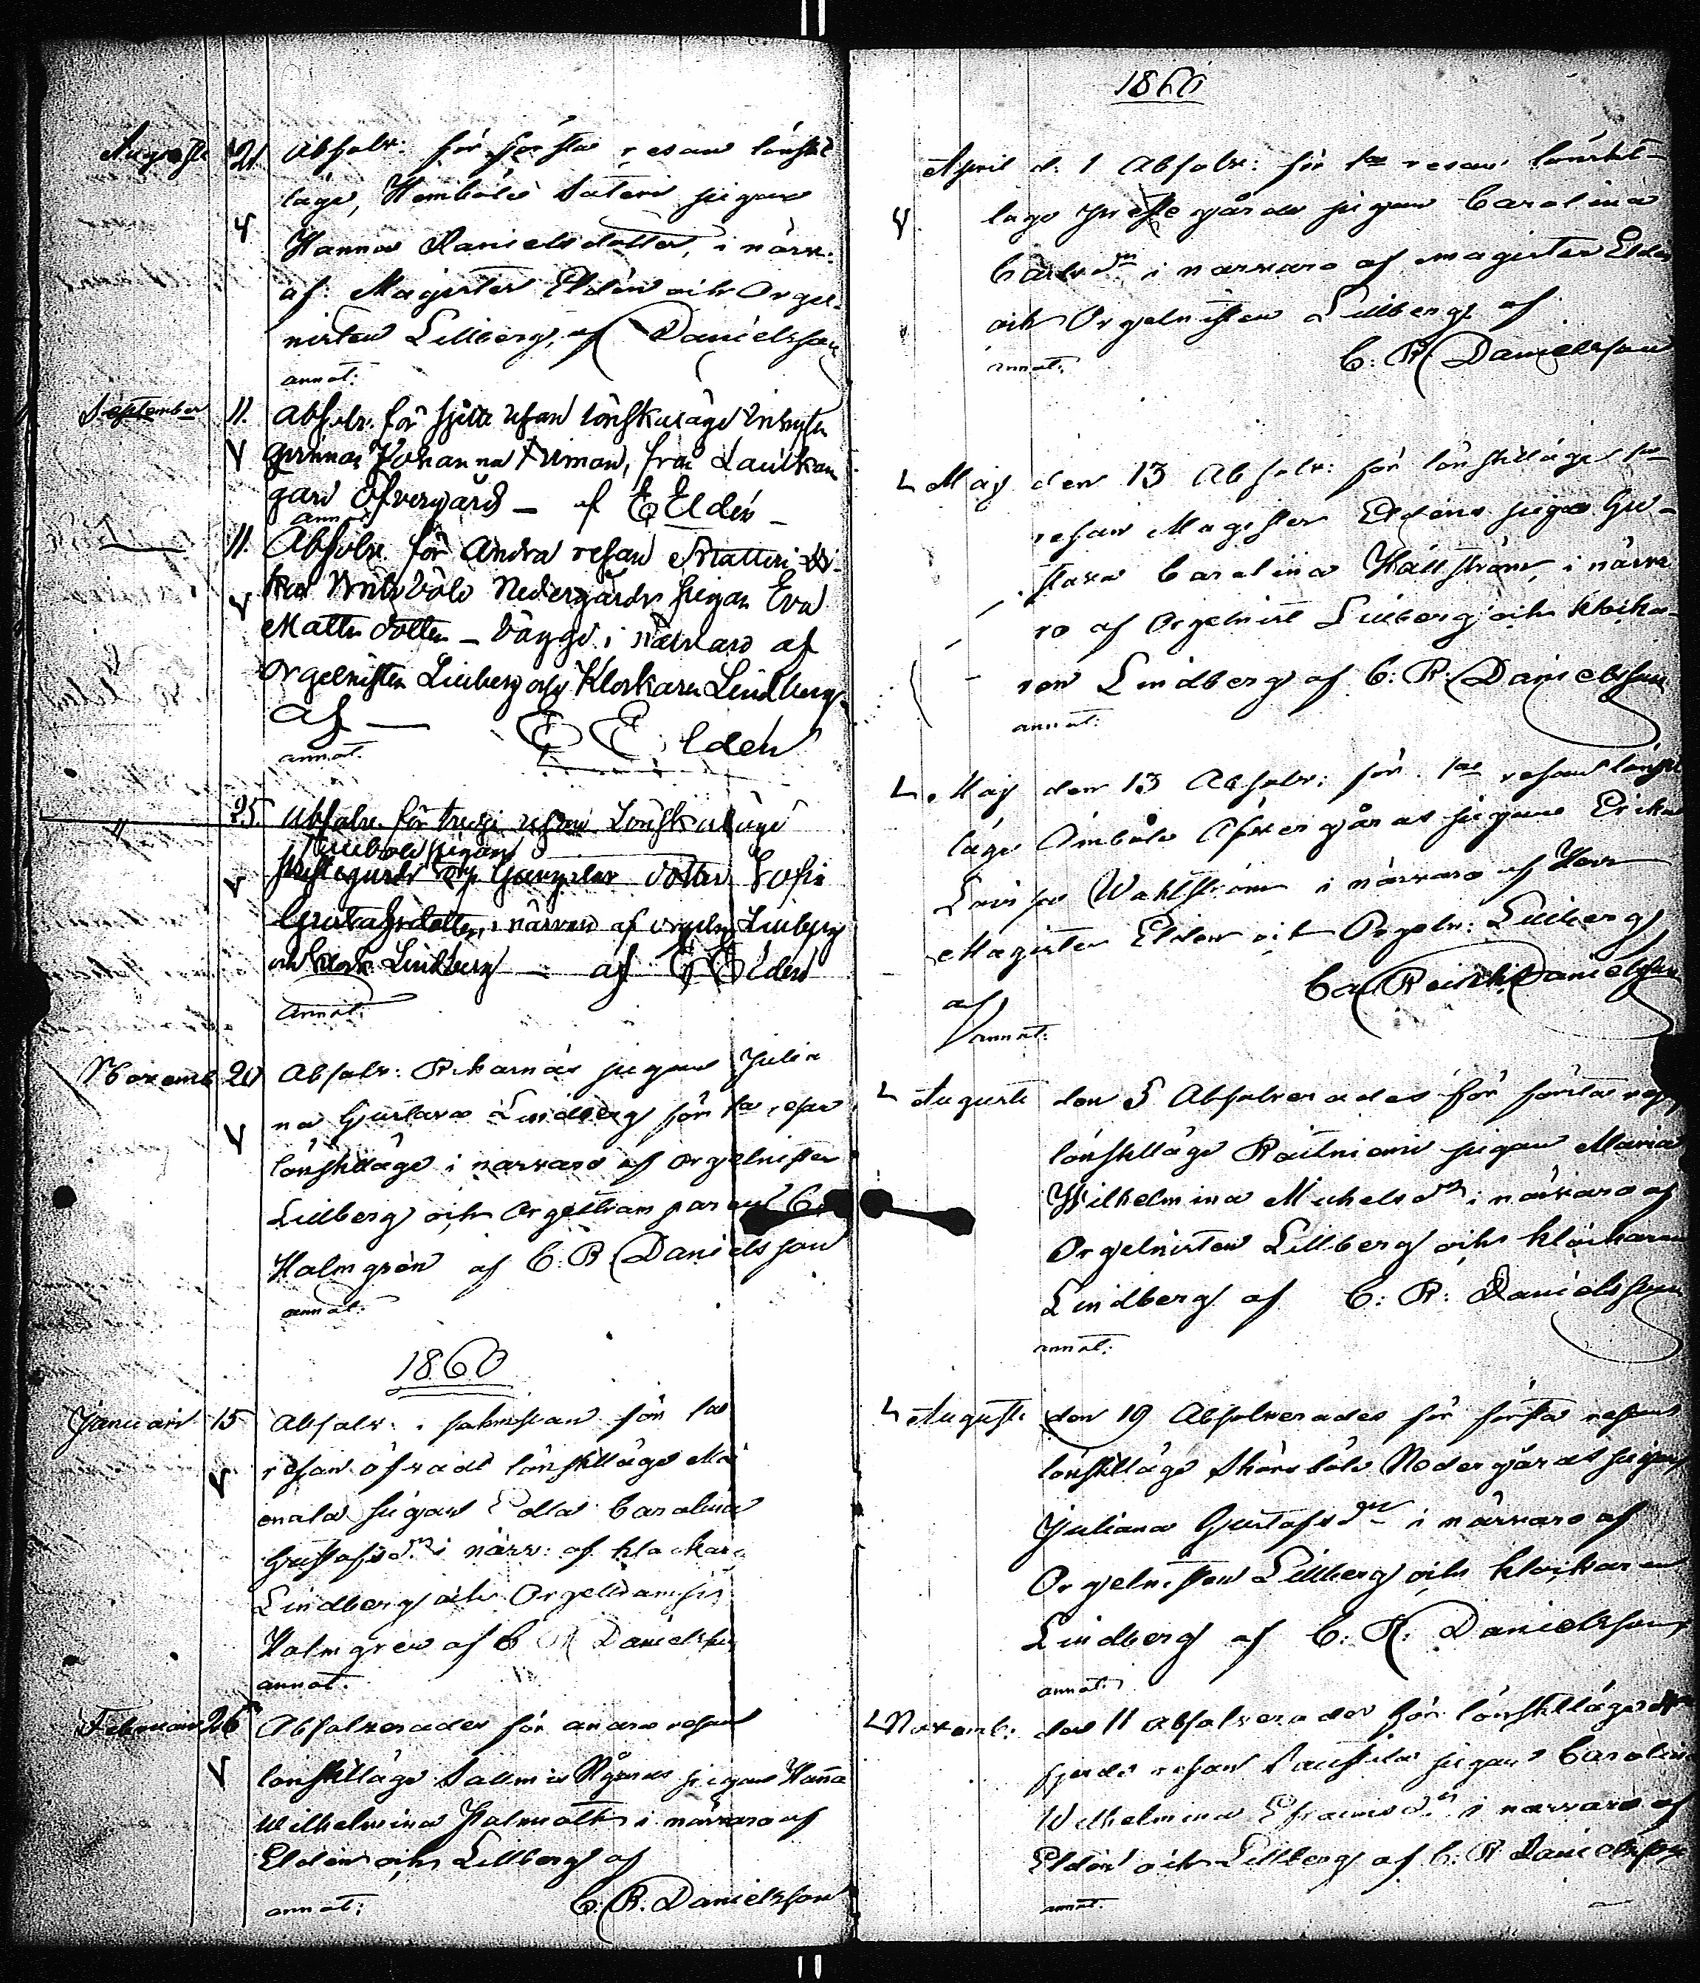 Augusti 21 Absolv: för första resan lönskl
läge, Hemböle Säteri pigan
Hanna Danielsdotter, i närv:
af Magister Eldén och Orgel-
nisten Lillberg, af Danielsson
annot:
September 11. Absolv. för sjette resan lönskaläge
Johanna från
gård Öfvergård — af E Eldén —
annot
11. Absolv. för Andra resan
böle Nedergårds pigan Eva
Matts dotter — i närvaro af
Orgelnisten Lillberg och Klockaren Lindberg.
af — E Eldén
annot.
25. Absolv. för tredje resan Lönskaläge
pigan
dotter Sofia
Gustafsdotter, i närvaro af orgeln. Lillberg
och Klock. Lindberg — af E Eldén
Annot:
Novemb 20 Absolv: pigan Julia
na Gustava Lindberg för 1sta resan
lönskläge i närvaro af Orgelnisten
Lillberg och Orgeltramparen C.
Holmgrén af C. R Danielsson
annot:
1860
Januari 15 Absolv: i sakristian för 1sta
resan öfvadt lönskläge
pigan Edla Carolina
Gustafsdr i närv: af klockare
Lindberg och
Holmgren af C R Danielsson
annot.
Februari 26 Absolverades för andra resan
lönskläge pigan Hanna
Wilhelmina i närvaro af
Eldén och Lillberg af
annot: C. R. Danielsson
1860
April d. 1 Absolv: för 1sta resan lönskl-
läge Prestegårds pigan Carolina
Carlsdr i närvaro af magister Eldén
och Orgelnisten Lillberg af
annot: C: R Danielsson
Maj den 13 Absolv: för lönskläge 1sta
resan Magister Eldéns piga Gu-
stava Carolina Hällström, i närva
ro af Orgelnist Lillberg och klocka-
ren Lindberg af C. R. Danielsson
annot:
Maj den 13 Absolv: för 1sta resan lönsk
läge Ömböle Öfvergårds pigan Erika
Lovisa Wahlström i närvaro af Herr
Magister Eldén och Orgeln: Lillberg
af Ca Reinh. Danielsson
annot:
Augusti den 5 Absolverades för första resan
lönskläge pigan Maria
Wilhelmina Michelsdr i närvaro af
Orgelnisten Lillberg och klockaren
Lindberg af C: R: Danielsson
annot:
Augusti den 19 Absolverades för första resan
lönskläge Skinnböle Nedergårds pigan
Juliana Gustafsdr i närvaro af
Orgelnisten Lillberg och klockaren
Lindberg af C. R. Danielsson
annot:
Novemb: den 11 Absolverades för lönskläge
fjerde resan pigan Carolina
Wilhelmina Efraimsdr i närvaro af
Eldén och Lillberg af C: R Danielsson
annot.